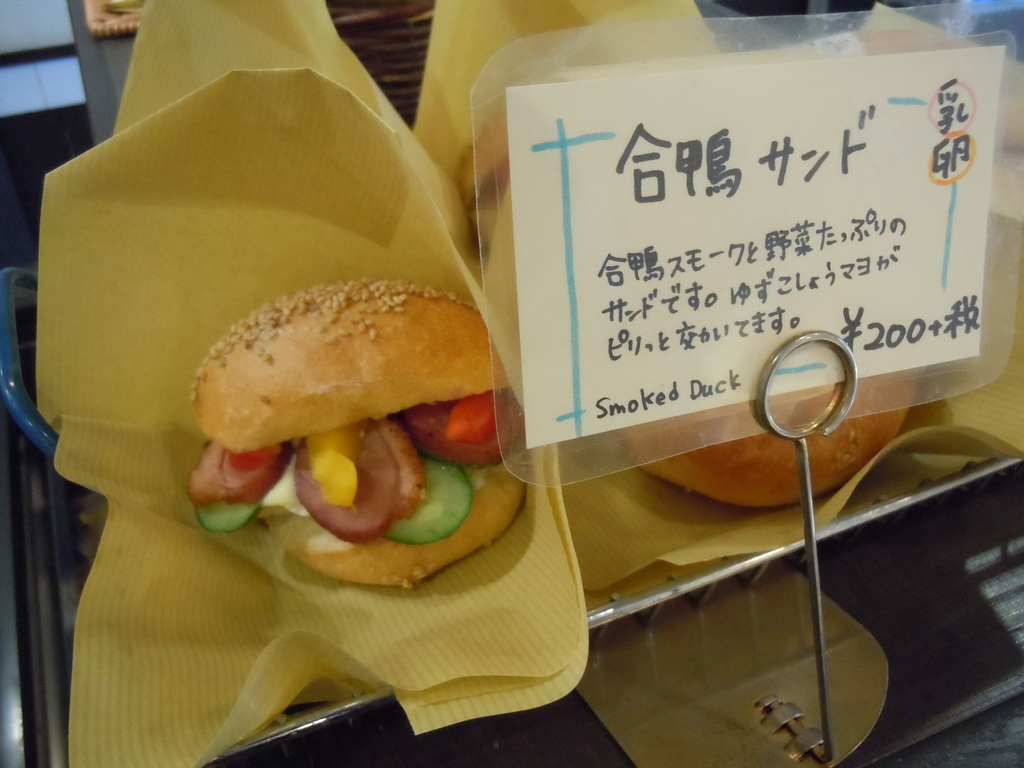 合鴨サンド
乳
卵
合鴨スモークと野菜たっぷりの
サンドです。ゆずこしょうマヨが
ピリっと効いてます。
¥200+税
Smoked Duck